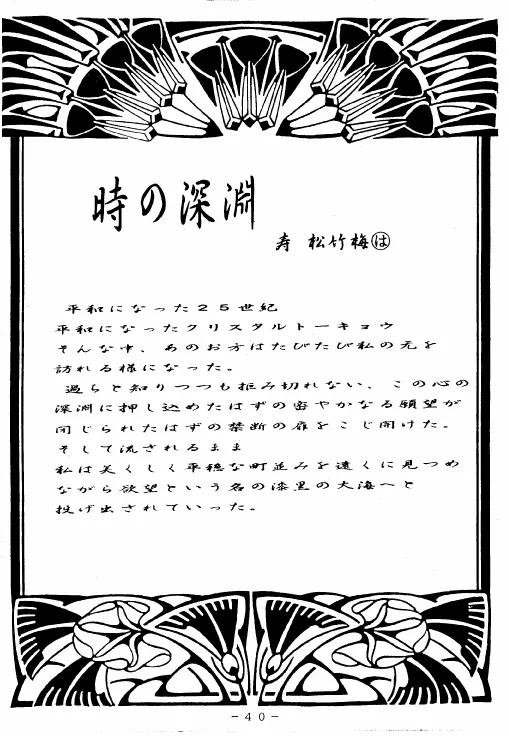 時の深淵
寿 松竹梅は
平和になった25世紀
平和になったクリスタルトーキョウ
そんな中、あのお方はたびたび私の元を
訪れる様になった。
過ちと知りつつも拒み切れない、この心の
深淵に押し込めたはずの密やかなる願望が
閉じられたはずの禁断の扉をこじ開けた。
そして流されるまま
私は美くしく平穏な町並みを遠くに見つめ
ながら欲望という名の漆黒の大海へと
投げ出されていった。
-40-